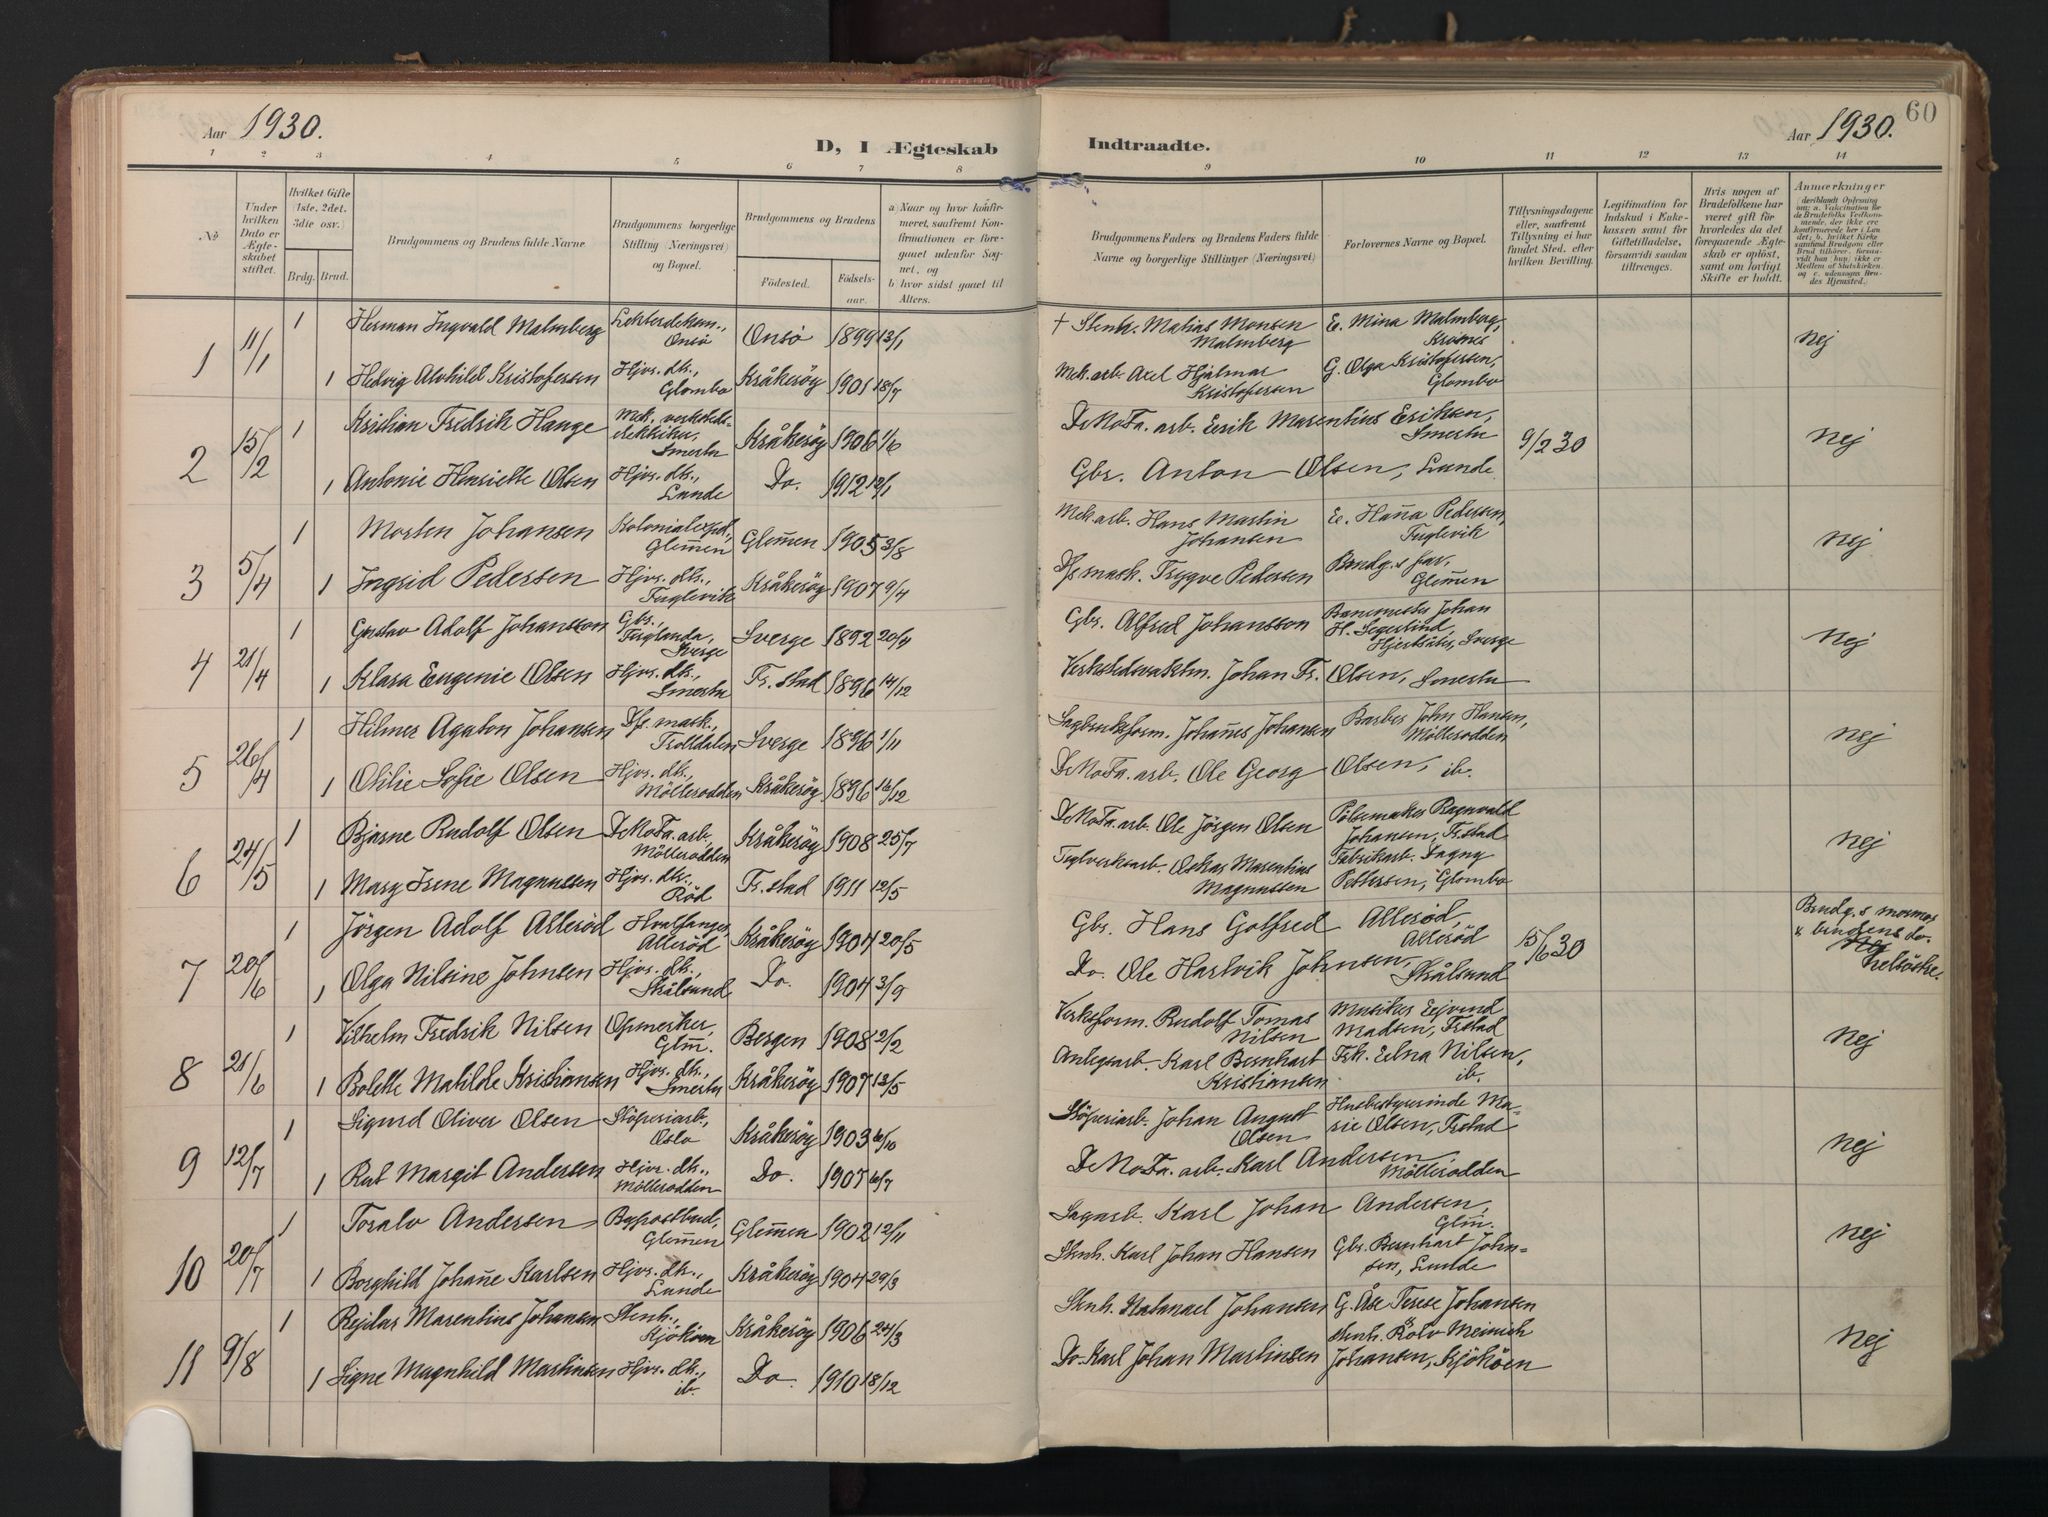 Aar 1930.
D, I Ægteskab
Indtraadte.
Aar 1930.
60
1 2 3 4 5 6 7 8 9 10 11 12 13 14
No
Under hvilken Dato er Ægteskabet stiftet.
Hvilket Gifte (1ste, 2det, 3die osv.)
Brdg. Brud.
Brudgommens og Brudens fulde Navne.
Brudgommens borgerlige Stilling (Næringsvei) og Bopæl.
Brudgommens og Brudens
Fødested.
Fødselsaar.
a) Naar og hvor konfirmeret, saafremt Konfirmationen er foregaaet udenfor Sognet, og
b) hvor sidst gaaet til Alters.
Brudgommens Faders og Brudens Faders fulde Navne og borgerlige Stillinger (Næringsvei)
Forlovernes Navne og Bopæl.
Tillysningsdagene eller, saafremt Tillysning ei har fundet Sted, efter hvilken Bevilling.
Legitimation for Indskud i Enkekassen samt for Giftetilladelse, forsaavidt saadan tiltrænges.
Hvis nogen af Brudefolkene har været gift før hvorledes da det foregaaende Ægteskab er opløst, samt om lovligt Skifte er holdt.
Anmærkninger
1 11/1 1 Herman Ingvald Malmberg Onsø Onsø 1899 13/1 + Stenh. Matias Monsen Malmberg E. Mina Malmberg, Nej
1 Hedvig Alvhild Kristofersen Hjvs. dtr., Glombo Kråkerøy 1901 18/7 Mek. arb. Axel Hjalmar Kristofersen G. Olga Kristofersen, Glombo
2 15/2 1 Kristian Fredrik Hauge Mek. verksteds- Smertu Kråkerøy 1906 1/6 DeNoFa. arb. Erik Marentius Eriksen, Smertu 9/2 30 Nej
1 Antonie Henriette Olsen Hjvs. dtr., Lunde Do. 1912 12/1 Gbr. Anton Olsen, Lunde
3 5/4 1 Morten Johansen Kolonialexpd., Glemmen Glemmen 1905 3/8 Mek. arb. Hans Martin Johansen E. Hanna Pedersen, Fuglevik Nej
1 Ingrid Pedersen Hjvs. dtr., Fuglevik Kråkerøy 1907 9/4 Dfs mask. Trygve Pedersen Brudg.s far, Glemmen
4 21/4 1 Gustav Adolf Johansson Gbr., Sverge Sverge 1892 20/9 Gbr. Alfred Johansson Banemester Johan H. Segerlind Sverge Nej
1 Klara Eugenie Olsen Hjvs. dtr., Smertu Fr.stad 1896 14/12 Johan Fr. Olsen, Smertu
5 26/4 1 Hilmer Agaton Johansen Dfs. mask., Trolldalen Sverge 1896 1/11 Sagbruksform. Johannes Johansen Barber John Hansen, Møllerodden Nej
1 Otilie Sofie Olsen Hjvs. dtr., Møllerodden Kråkerøy 1896 16/12 DeNoFa. arb. Ole Georg Olsen, ib.
6 24/5 1 Bjarne Rudolf Olsen DeNoFa. arb., Møllerodden Kråkerøy 1908 25/7 DeNoFa. arb. Ole Jørgen Olsen Pølsemaker Ragnvald Johansen, Fr.stad Nej
1 Mary Irene Magnussen Hjvs. dtr., Rød Fr.stad 1911 12/5 Teglverksarb. Oskar Marentius Magnussen Fabrikarb. Dagny Pettersen, Glombo
7 20/6 1 Jørgen Adolf Allerød Hvalfanger, Allerød Kråkerøy 1904 20/5 Gbr. Hans Gotfred Allerød, Allerød 15/6 30 Brudg.s mormor & brudens do. Nej
1 Olga Nilsine Johnsen Hjvs. dtr., Stålsund Do. 1904 3/9 Do. Ole Hartvik Johnsen, Stålsund
8 21/6 1 Vilhelm Fredrik Nilsen Opmerker, Glm. Bergen 1908 2/2 Verksform. Rudolf Tomas Nilsen Musiker Eyvind Madsen, Frstad Nej
1 Bolette Matilde Kristiansen Hjvs. dtr., Smertu Kråkerøy 1907 13/5 Anlegsarb. Karl Bernhart Kristiansen Frk. Edna Nilsen, ib.
9 12/7 1 Sigurd Oliver Olsen Støperiarb., Oslo Kråkerøy 1903 6/10 Støperiarb. Johan August Olsen Husbestyrerinde Marie Olsen, Frstad Nej
1 Rut Margit Andersen Hjvs. dtr., Møllerodden Do. 1907 6/7 DeNoFa. arb. Karl Andersen, Møllerodden
10 20/7 1 Toralv Andersen Bypostbud, Glemmen Glemmen 1902 12/11 Sagarb. Karl Johan Andersen, Glm. Nej
1 Borghild Johanne Karlsen Hjvs. dtr., Lunde Kråkerøy 1904 29/3 Stenh. Karl Johan Hansen Gbr. Bernhart Johnsen, Lunde
11 9/8 1 Reidar Marentius Johansen Stenh., Kjøkøen Kråkerøy 1906 24/3 Stenh. Natanael Johansen G. Åse Terese Johansen Nej
1 Signe Magnhild Martinsen Hjvs. dtr., ib. Do. 1910 18/12 Do. Karl Johan Martinsen Stenh. Rolv Meinich Johansen, Kjøkøen